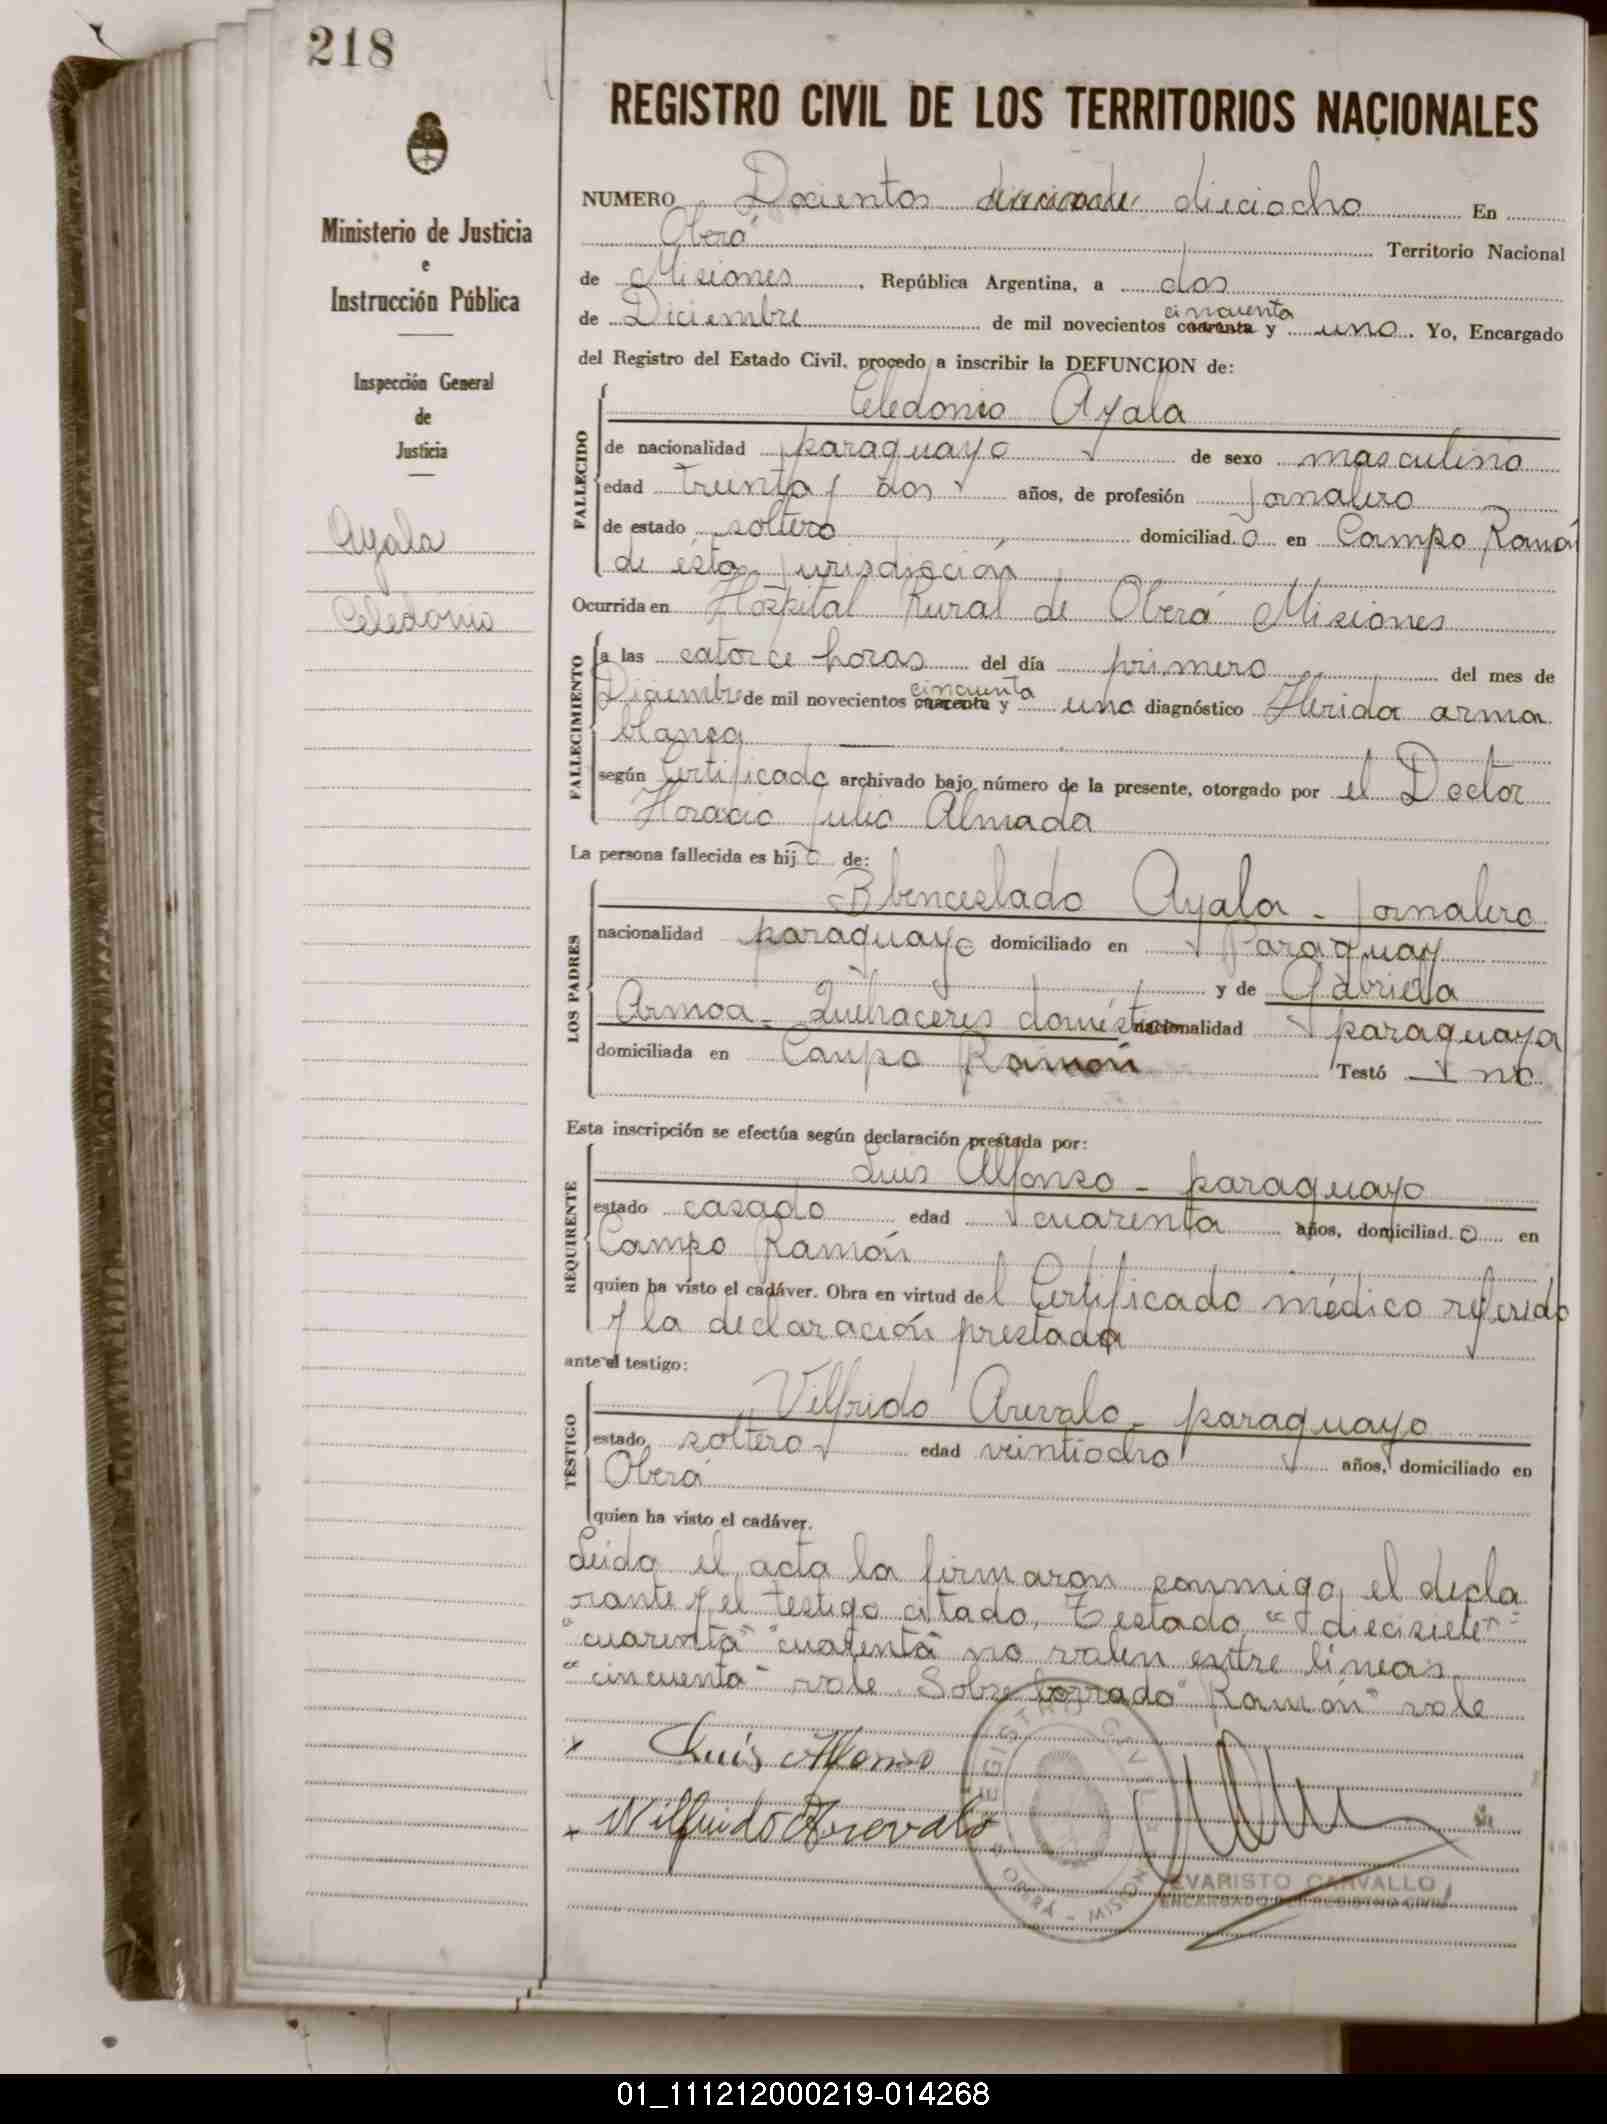 218
REGISTRO CIVIL DE LOS TERRITORIOS NACIONALES
Ministerio de Justicia
e
Instrucción Pública
Inspección General
de
Justicia
Ayala
Celedonio
NUMERO Docientos diecisiete dieciocho En
Oberá Territorio Nacional
de Misiones, República Argentina, a dos
de Diciembre de mil novecientos cuarenta cincuenta y uno. Yo, Encargado
del Registro del Estado Civil, procedo a inscribir la DEFUNCION de:
FALLECIDO
Celedonio Ayala
de nacionalidad paraguayo de sexo masculino
edad treinta y dos años, de profesión Jornalero
de estado soltero domiciliad.o en Campo Ramón
de ésta jurisdicción
Ocurrida en Hospital Rural de Oberá Misiones
FALLECIMIENTO
a las catorce horas del día primero del mes de
Diciembre de mil novecientos cuarenta cincuenta y uno diagnóstico Herida arma
blanca
según Certificado archivado bajo número de la presente, otorgado por el Doctor
Horacio Julio Almada
La persona fallecida es hijo de:
LOS PADRES
Bbenceslado Ayala - Jornalero
nacionalidad paraguayo domiciliado en Paraguay
y de Gabriela
Armoa - Quehaceres domést. nacionalidad paraguaya
domiciliada en Campo Ramón Testó no
Esta inscripción se efectúa según declaración prestada por:
REQUIRENTE
Luis Alfonso - paraguayo
estado casado edad cuarenta años, domiciliad.o en
Campo Ramón
quien ha visto el cadáver. Obra en virtud del Certificado médico referido
y la declaración prestada
ante el testigo:
TESTIGO
Vilfrido Arevalo - paraguayo
estado soltero edad veintiocho años, domiciliado en
Oberá
quien ha visto el cadáver.
Leida el acta la firmaron conmigo, el decla
rante y el testigo citado, Testado "diecisiete"
"cuarenta" "cuarenta" no valen entre líneas
"cincuenta" vale. Sobre borrado "Ramón" vale
x Luis Alfonso
x Wilfrido Arevalo
REGISTRO CIVIL
OBERÁ - MISIONES
EVARISTO CARVALLO
ENCARGADO DEL REGISTRO CIVIL
01_111212000219-014268